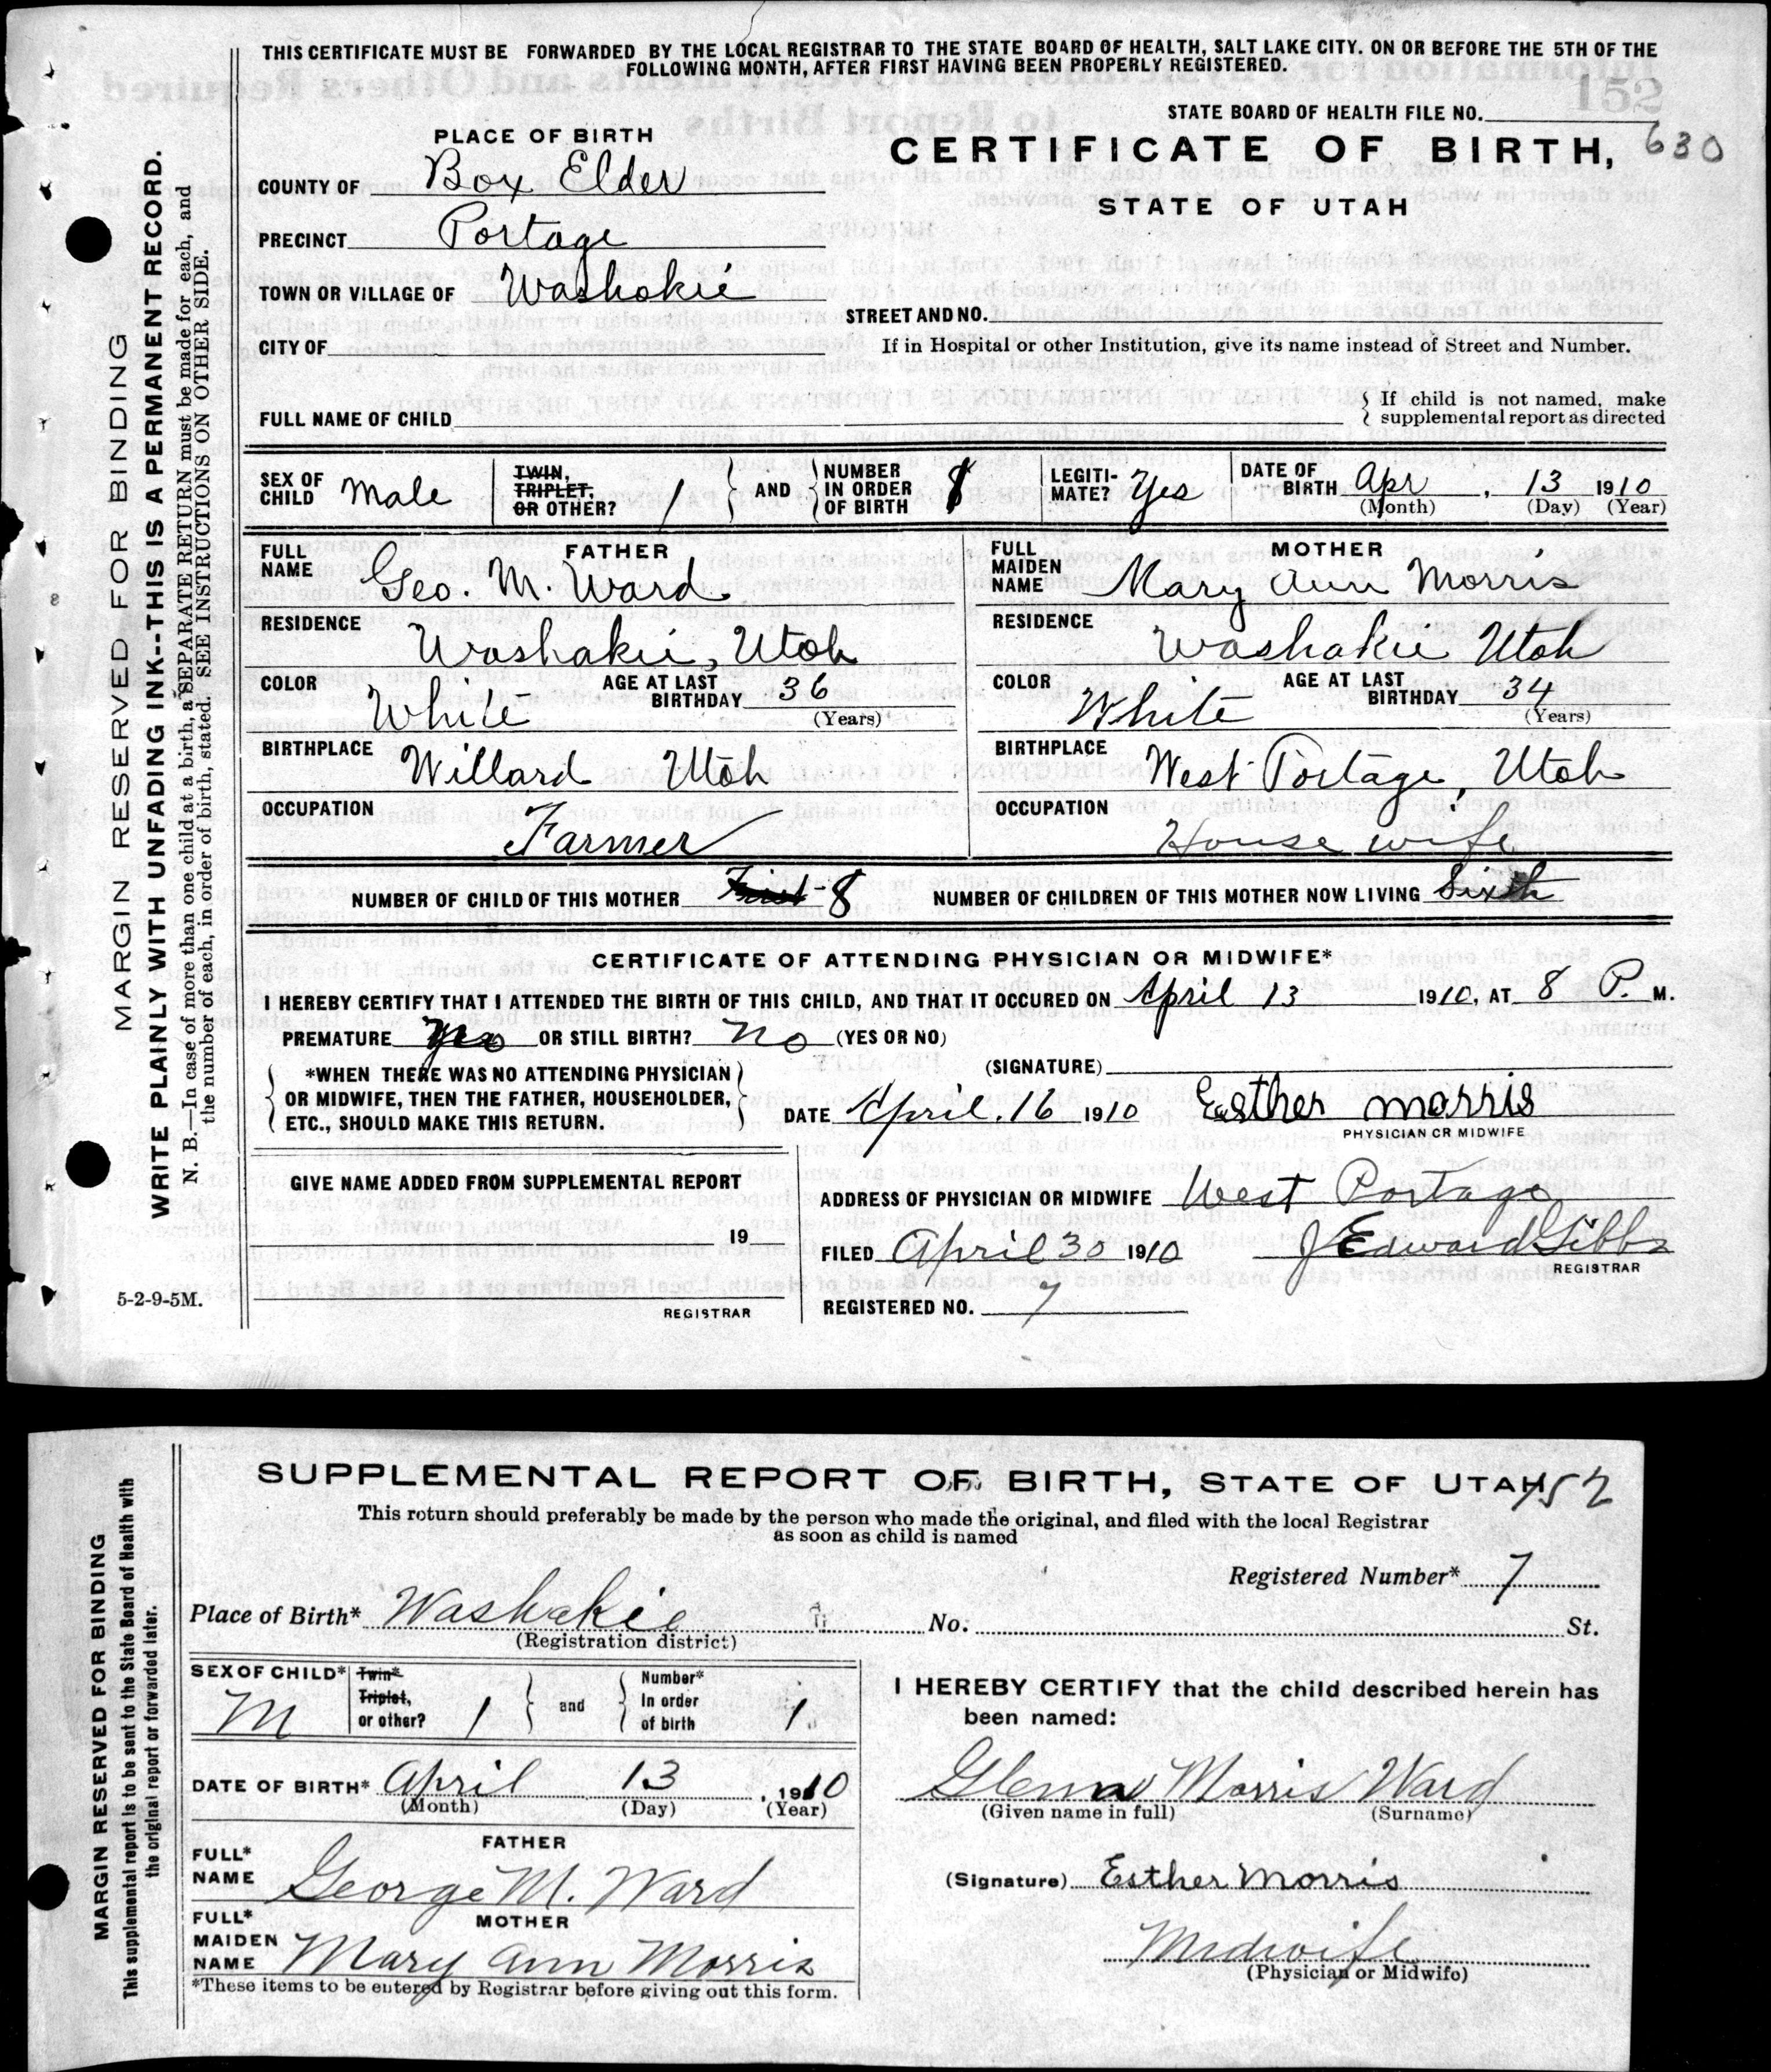 THIS CERTIFICATE MUST BE FORWARDED BY THE LOCAL REGISTRAR TO THE STATE BOARD OF HEALTH, SALT LAKE CITY. ON OR BEFORE THE 5TH OF THE
FOLLOWING MONTH, AFTER FIRST HAVING BEEN PROPERLY REGISTERED.
152
STATE BOARD OF HEALTH FILE NO.
PLACE OF BIRTH
CERTIFICATE OF BIRTH, 630
STATE OF UTAH
COUNTY OF Box Elder
PRECINCT Portage
TOWN OR VILLAGE OF Washakie
STREET AND NO.
CITY OF
If in Hospital or other Institution, give its name instead of Street and Number.
FULL NAME OF CHILD
If child is not named, make
supplemental report as directed
SEX OF CHILD Male
TWIN, TRIPLET, OR OTHER? 1
AND NUMBER IN ORDER OF BIRTH
LEGITIMATE? Yes
DATE OF BIRTH Apr, 13 1910
(Month) (Day) (Year)
FATHER
FULL NAME Geo. M. Ward
RESIDENCE Washakie, Utah
COLOR White AGE AT LAST BIRTHDAY 36
(Years)
BIRTHPLACE Willard Utah
OCCUPATION Farmer
MOTHER
FULL MAIDEN NAME Mary Ann Morris
RESIDENCE Washakie Utah
COLOR White AGE AT LAST BIRTHDAY 34
(Years)
BIRTHPLACE West Portage, Utah
OCCUPATION House wife
NUMBER OF CHILD OF THIS MOTHER 8 NUMBER OF CHILDREN OF THIS MOTHER NOW LIVING Sixth
CERTIFICATE OF ATTENDING PHYSICIAN OR MIDWIFE*
I HEREBY CERTIFY THAT I ATTENDED THE BIRTH OF THIS CHILD, AND THAT IT OCCURED ON April 13 1910, AT 8 P. M.
PREMATURE OR STILL BIRTH? No (YES OR NO)
(SIGNATURE)
*WHEN THERE WAS NO ATTENDING PHYSICIAN
OR MIDWIFE, THEN THE FATHER, HOUSEHOLDER,
ETC., SHOULD MAKE THIS RETURN.
DATE April. 16 1910 Esther Morris
PHYSICIAN OR MIDWIFE
GIVE NAME ADDED FROM SUPPLEMENTAL REPORT
19
REGISTRAR
ADDRESS OF PHYSICIAN OR MIDWIFE West Portage
FILED April 30 1910 J Edward Gibbs
REGISTRAR
REGISTERED NO. 7
5-2-9-5M.
MARGIN RESERVED FOR BINDING
WRITE PLAINLY WITH UNFADING INK--THIS IS A PERMANENT RECORD.
N. B.—In case of more than one child at a birth, a SEPARATE RETURN must be made for each, and
the number of each, in order of birth, stated. SEE INSTRUCTIONS ON OTHER SIDE.
SUPPLEMENTAL REPORT OF BIRTH, STATE OF UTAH 152
This return should preferably be made by the person who made the original, and filed with the local Registrar
as soon as child is named
Registered Number* 7
Place of Birth* Washakie No. St.
(Registration district)
SEX OF CHILD* M
Twin* Triplet, or other? 1
and Number* In order of birth 1
DATE OF BIRTH* April 13, 1910
(Month) (Day) (Year)
FATHER
FULL* NAME George M. Ward
MOTHER
FULL* MAIDEN NAME Mary Ann Morris
*These items to be entered by Registrar before giving out this form.
I HEREBY CERTIFY that the child described herein has
been named:
Glenn Morris Ward
(Given name in full) (Surname)
(Signature) Esther Morris
Midwife
(Physician or Midwife)
MARGIN RESERVED FOR BINDING
This supplemental report is to be sent to the State Board of Health with
the original report or forwarded later.